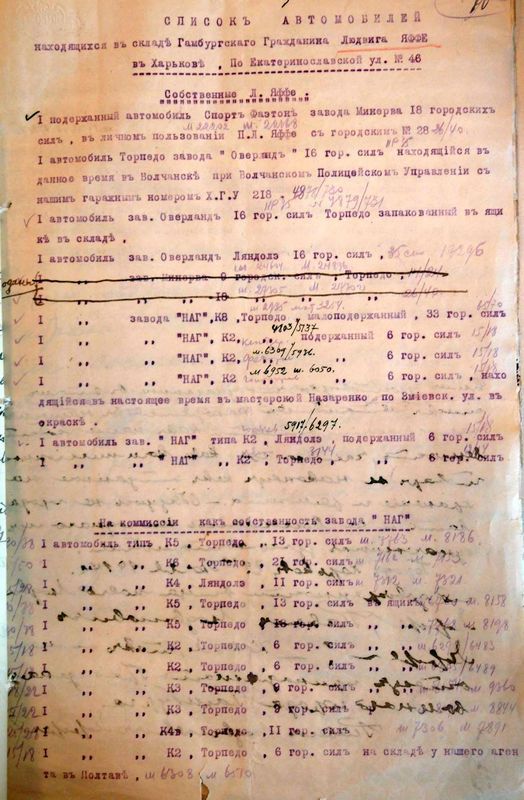 СПИСОКЪ АВТОМОБИЛЕЙ
находящихся въ складѣ Гамбургскаго Гражданина Людвига ЯФФЕ
въ Харьковѣ , По Екатеринославской ул. № 46
Собственные Л. Яффе .
I подержанный автомобиль Спортъ Фаэтонъ завода Минерва 18 городскихъ
силъ , въ личномъ пользовании П.Л. Яффе съ городскимъ № 28 26/40.
I автомобиль Торпедо завода " Оверландъ " 16 гор. силъ находящійся въ
данное время въ Волчанскѣ при Волчанскомъ Полицейскомъ Управленіи съ
нашимъ гаражнымъ номеромъ Х.Г.У 218
I автомобиль зав. Оверландъ 16 гор. силъ Торпедо запакованный въ ящи
кѣ въ складѣ ,
I автомобиль зав. Оверландъ Ляндолэ 16 гор. силъ ,
I ,, зав. Минерва 9 городск. силъ , Торпедо ,
I ,, ,, ,, 18 ,, ,, ,, 26/40
I ,, завода "НАГ",К8 ,Торпедо , малоподержанный , 33 гор. силъ
4803/5737
I ,, ,, "НАГ", К2, подержанный 6 гор. силъ 15/18
м.6309/5936.
I ,, ,, "НАГ", К2, ,, 6 гор. силъ 15/18
м 6952 ш. 6050.
I ,, ,, "НАГ", К2 ,, 6 гор. силъ , нахо
дящійся въ настоящее время въ мастерской Назаренко по Зміевск. ул. въ
окраскѣ .
5917/6297.
I автомобиль зав. "НАГ" типа К2 , Ляндолэ , подержанный 6 гор. силъ
I ,, ,, "НАГ" ,, К2, Торпедо , ,, 6 гор. силъ
На коммиссіи какъ собственность завода " НАГ"
I автомобиль типъ К5 , Торпедо , 13 гор. силъ ш. 7763 м. 8186.
I ,, ,, К6 , Торпедо , 21 гор. силъ
I ,, ,, К4 , Ляндолэ , 11 гор. силъ ш 7312 м. 7321
I ,, ,, К5 , Торпедо , 13 гор. силъ въ ящикѣ м 8158
I ,, ,, К5 , Торпедо , 13 гор. силъ ,, м 8198
I ,, ,, К2 , Торпедо , 6 гор. силъ
I ,, ,, К2 , Торпедо , 6 гор. силъ
I ,, ,, К3 , Торпедо , 9 гор. силъ
I ,, ,, К3 , Торпедо , 9 гор. силъ м 2844
I ,, ,, К4в , Торпедо , 11 гор. силъ м 7306 м 7891
I ,, ,, К2 , Торпедо , 6 гор. силъ на складѣ у нашего аген
та въ Полтавѣ , м 6308